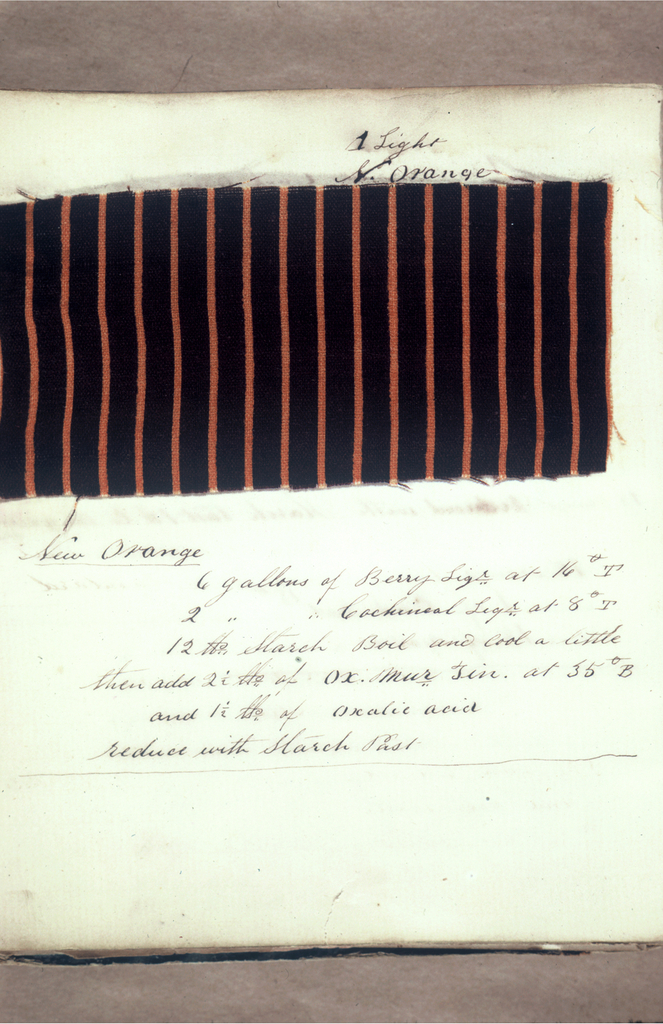 1 Light
N. Orange
New Orange
6 gallons of Berry Liqr. at 16° T
2 " " Cochineal Liqr. at 8° T
12 lbs. Starch Boil and cool a little
then add 2½ lbs. of Ox. Mur. Tin. at 35° B
and 1½ lbs. of Oxalic acid
reduce with Starch Past